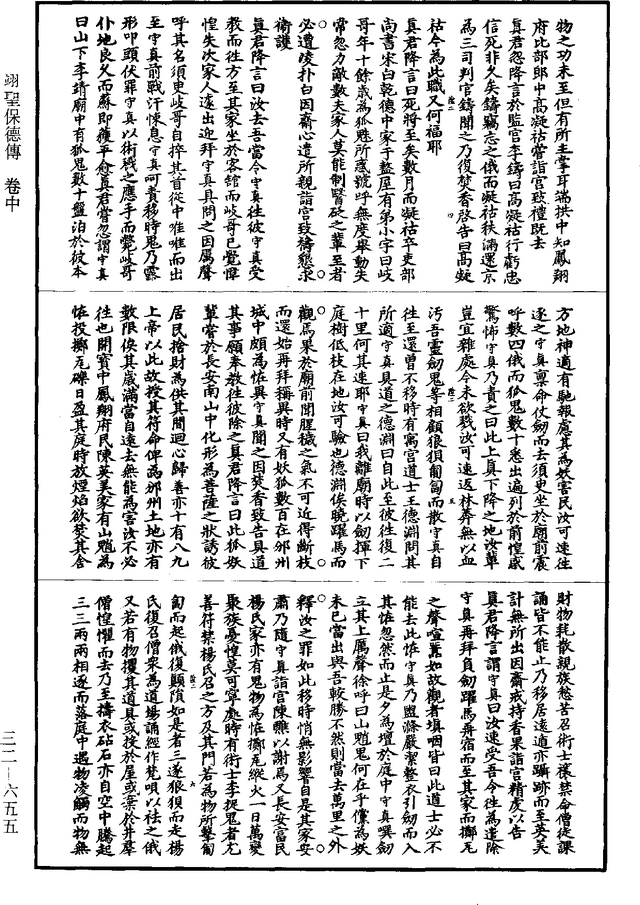 物之功未至但有所主掌耳端拱中知鳳翔
府比部郎中高凝祜嘗詣宮致禮既去
真君忽降言於監官李鑄曰高凝祜行虧忠
信死非久矣鑄竊忘之俄而凝祜秩滿還京
為三司判官鑄聞之乃復焚香啓告曰高凝
祜今為此職又何福耶
真君降言曰死將至矣數月而凝祜卒吏部
尚書宋白乾德中家于盩厔有弟小字曰岐
哥年十餘歲為狐魅所惑號呼無度舉動失
常忽力敵數夫家人莫能制醫砭之輩至者
必遭凌扑白因齋心遣所親詣宮致禱懇求
衛護
真君降言曰汝去吾當今守真往彼守真受
教而往方至其家坐於客舘而岐哥已覺惶
惶失次家人遽出迎拜守真具問之因厲聲
呼其名須臾岐哥自捽其首從中唯唯而出
至守真前戰汗悚息守真呵責移時鬼乃露
形叩頭伏罪守真以術械之應手而斃岐哥
仆地良久而蘇即獲平愈真君嘗忽謂守真
曰山下李靖廟中有狐鬼數十盤泊於彼本
方地神適有馳報慮其為妖害民汝可速往
逐之守真稟命仗劍而去須臾坐於廟前震
呼數四俄而狐鬼數十悉出遍列於前惶惑
驚怖守真乃責之曰此上真下降之地汝輩
豈宜雜處今未欲戮汝可速返林莽無以血
汚吾靈劍鬼等相顧狼狽匍匐而散守真自
往至還曾不移時有寓宮道士王德淵問其
所適守真具道之德淵曰自此至彼往復二
十里何其速耶守真曰我離廟時以劍揮下
庭樹低枝在地汝可驗也德淵俟曉躍馬而
觀焉果於廟前聞腥穢之氣不可近得斷枝
而還始再拜稱異時又有妖狐數百在邠州
城中頗為恠異守真聞之因焚香致告具道
其事願奉教往彼除之真君降言曰此狐妖
輩嘗於長安南山中化形為菩薩之狀誘彼
居民捨財為供其間迴心歸善亦十有八九
上帝以此故授其符命俾為邠州土地亦有
數限俟其歲滿當自遠去無能為害汝不必
往也開寶中鳳翔府民陳英美家有山魈為
恠投擲瓦礫日盈其庭時放煙焰欲焚其舍
財物耗散親族愁苦召術士禳禁命僧徒課
誦皆不能止乃移居遠道亦躡跡而至英美
計無所出因齋戒持香果詣宮精虔以告
真君降言謂守真曰汝速受吾令往為遣除
守真再拜負劍躍馬再宿而至其家而擲瓦
之聲喧囂如故觀者填咽皆曰此道士必不
能去此恠守真乃盥滌嚴潔整衣引劍而入
其恠忽然而止是夕為壇於庭中守真噀劍
立其上厲聲徐呼曰山魈鬼何在乎儻為妖
未已當出與吾較勝不然則當去萬里之外
釋汝之罪如此移時悄無影響自是其家安
肅乃隨守真詣宮陳醮以謝焉又長安富民
楊氏家亦有鬼物為恠擲瓦縱火一日萬變
聚族憂惶莫可寧處時有術士李捉鬼者尤
善符禁楊氏召之方及其門若為物所擊匍
匐而起俄復顛隕如是者三遂狼狽而走楊
氏復召僧衆為道場誦經作梵唄以祛之俄
又若有物攫其道具或挍於屋或棄於井羣
僧惶懼而去乃至擣衣砧石亦自空中騰起
三三兩兩相逐而落庭中遇物凌觸而物無
翊聖保德傳　卷中
三二—六五五